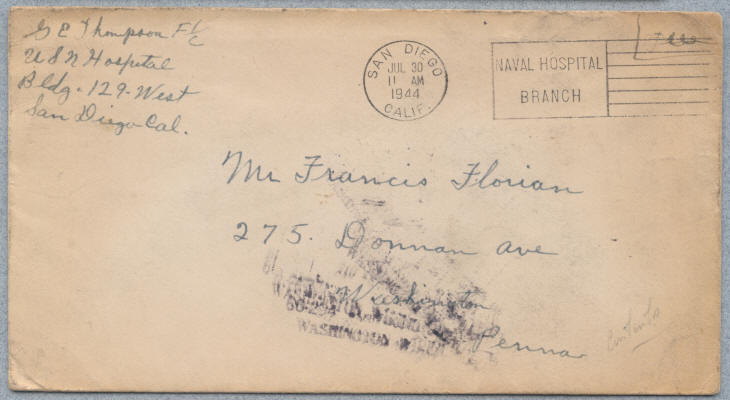 G E Thompson F 1/c
U S N Hospital
Bldg. 129. West
San Diego Cal.
SAN DIEGO
JUL 30
11 AM
1944
CALIF.
NAVAL HOSPITAL
BRANCH
Free
Mr Francis Florian
275. Donnan ave
Washington
Penna.
WASHINGTON
contents